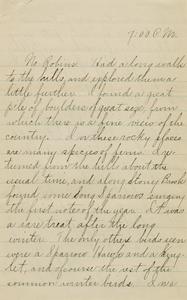 7:00 P.M.
No Robins. Had a long walk
to the hills, and explored them a
little further. I found a great
pile of boulders of great size, from
which there is a fine view of the
country. In these rocky places
are many species of ferns. I re-
turned from the hills about the
usual time, and along Stoney Brook
found some Song Sparrows singing
the first notes of the year. It was
a rare treat after the long
winter. The only other birds seen
were a Sparrow Hawk and a King-
let, and of course the rest of the
common winter birds. I was